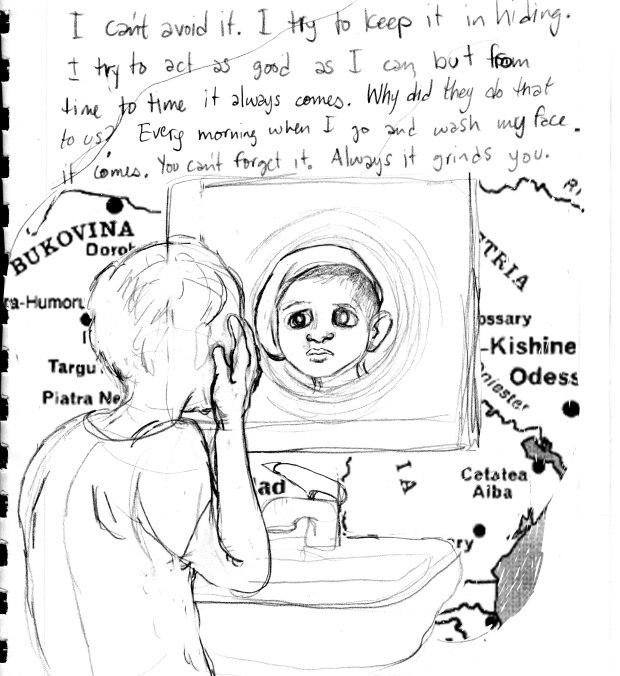 I can't avoid it. I try to keep it in hiding.
I try to act as good as I can, but from
time to time it always comes. Why did they do that
to us? Every morning when I go and wash my face.
it comes. You can't forget it. Always it grinds you.
BUKOVINA
Doroh
TRIA
ra-Humoru
ossary
-Kishine
Targu
Dniester
Odess
Piatra Ne
IA
Cetatea
Alba
ad
ry